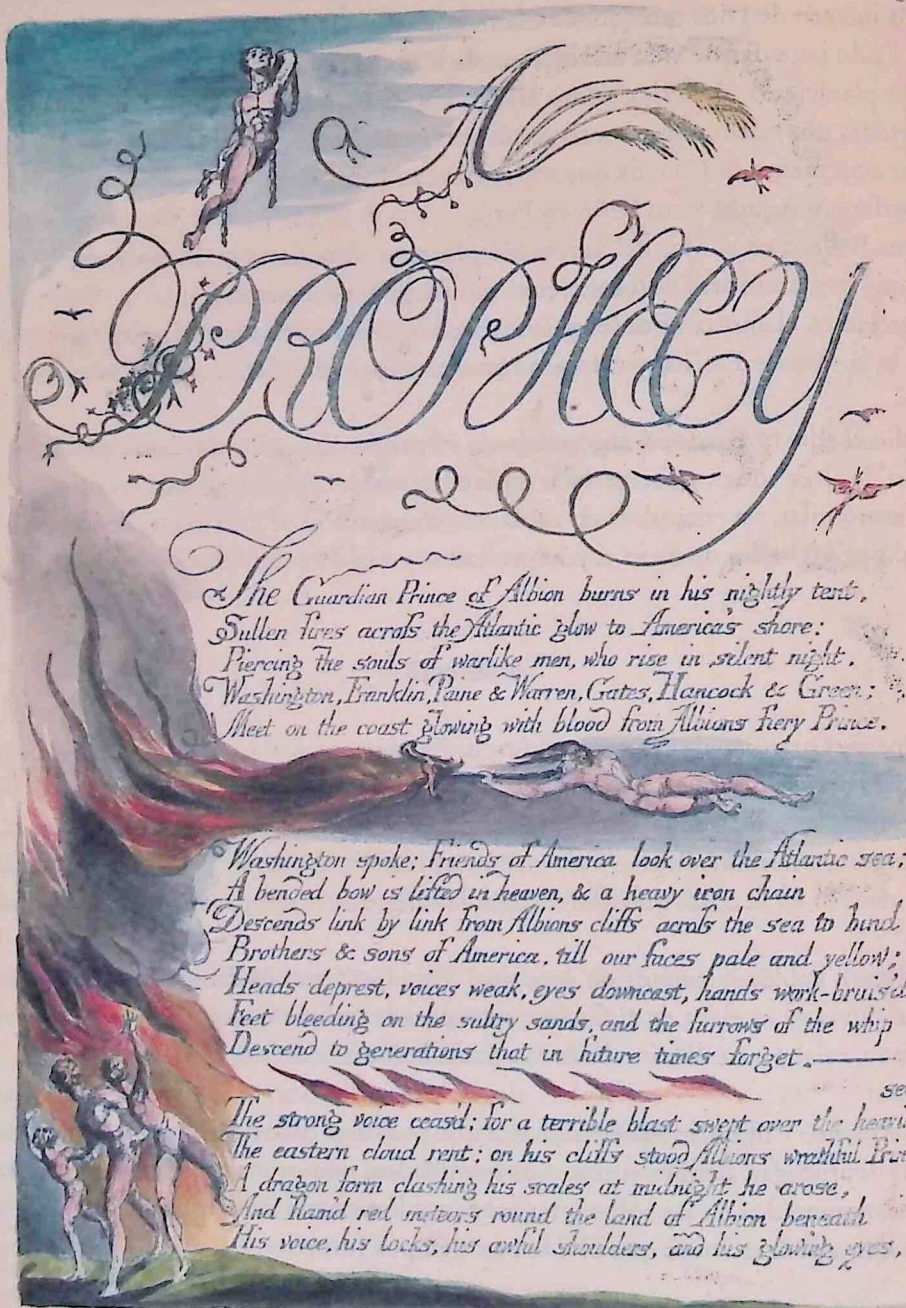 A
PROPHECY
The Guardian Prince of Albion burns in his nightly tent,
Sullen fires across the Atlantic glow to America's shore:
Piercing the souls of warlike men, who rise in silent night,
Washington, Franklin, Paine & Warren, Gates, Hancock & Green;
Meet on the coast glowing with blood from Albions fiery Prince.
Washington spoke; Friends of America look over the Atlantic sea;
A bended bow is lifted in heaven, & a heavy iron chain
Descends link by link from Albions cliffs across the sea to bind
Brothers & sons of America, till our faces pale and yellow;
Heads deprest, voices weak, eyes downcast, hands work-bruis'd
Feet bleeding on the sultry sands, and the furrows of the whip
Descend to generations that in future times forget.—
The strong voice ceas'd; for a terrible blast swept over the
The eastern cloud rent: on his cliffs stood Albions wrathful
A dragon form clashing his scales at midnight he arose,
And flam'd red meteors round the land of Albion beneath
His voice, his locks, his awful shoulders, and his glowing eyes,